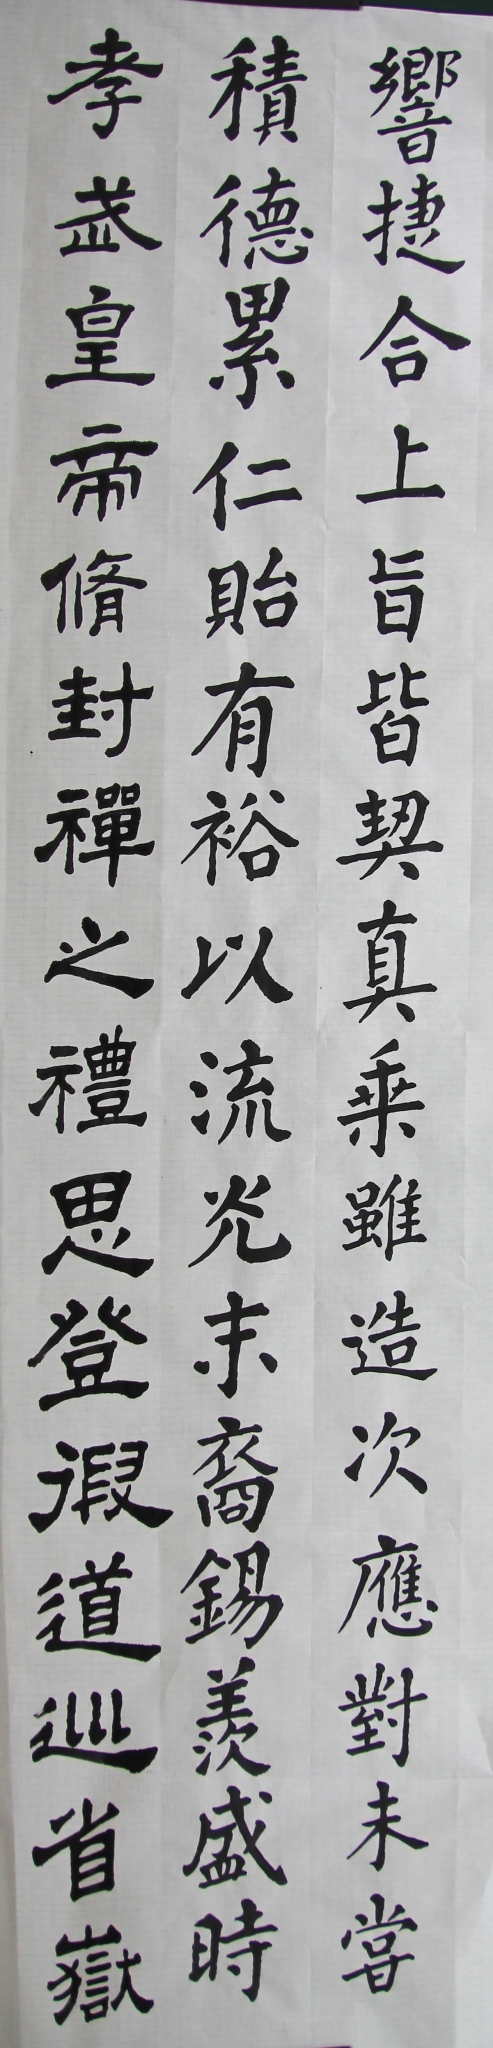 響捷合上旨皆契真乗雖造次應對未甞
積德累仁貽有裕以流光末裔錫羨盛時
孝武皇帝脩封禪之禮思登徦道巡省嶽